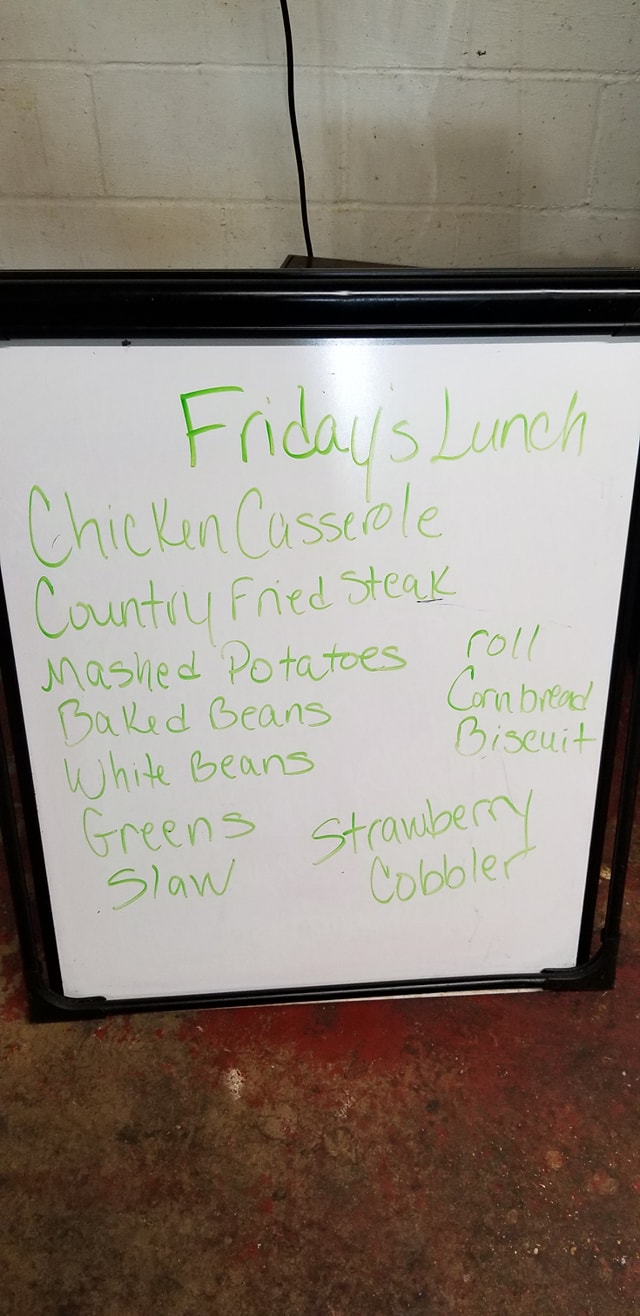 Fridays Lunch
Chicken Casserole
Country Fried Steak
Mashed Potatoes
Baked Beans
White Beans
Greens
Slaw
roll
Cornbread
Biscuit
Strawberry
Cobbler